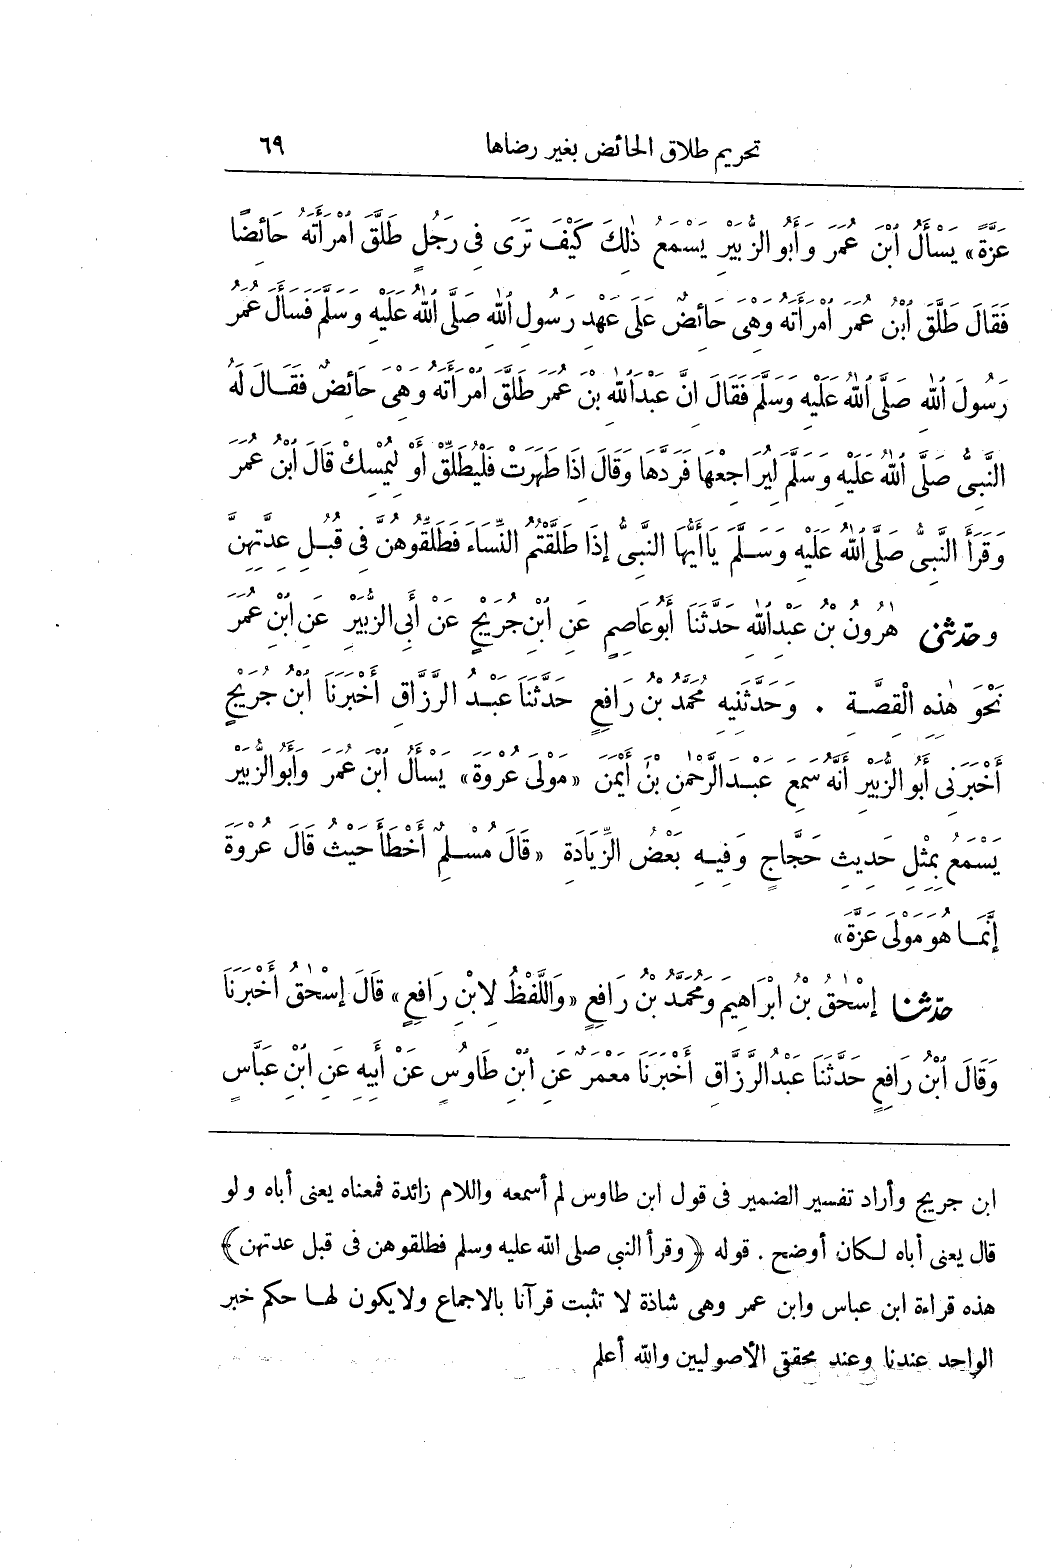 تحريم طلاق الحائض بغير رضاها ٦٩
عَزَّةَ» يَسْأَلُ ابْنَ عُمَرَ وَأَبُو الزُّبَيْرِ يَسْمَعُ ذٰلِكَ كَيْفَ تَرَى فِى رَجُلٍ طَلَّقَ امْرَأَتَهُ حَائِضًا
فَقَالَ طَلَّقَ ابْنُ عُمَرَ امْرَأَتَهُ وَهِىَ حَائِضٌ عَلَى عَهْدِ رَسُولِ اللّٰهِ صَلَّى اللّٰهُ عَلَيْهِ وَسَلَّمَ فَسَأَلَ عُمَرُ
رَسُولَ اللّٰهِ صَلَّى اللّٰهُ عَلَيْهِ وَسَلَّمَ فَقَالَ انَّ عَبْدَ اللّٰهِ بْنَ عُمَرَ طَلَّقَ امْرَأَتَهُ وَهِىَ حَائِضٌ فَقَالَ لَهُ
النَّبِىُّ صَلَّى اللّٰهُ عَلَيْهِ وَسَلَّمَ لِيُرَاجِعْهَا فَرَدَّهَا وَقَالَ اذَا طَهُرَتْ فَلْيُطَلِّقْ أَوْ لِيُمْسِكْ قَالَ ابْنُ عُمَرَ
وَقَرَأَ النَّبِىُّ صَلَّى اللّٰهُ عَلَيْهِ وَسَلَّمَ يَا أَيُّهَا النَّبِىُّ إِذَا طَلَّقْتُمُ النِّسَاءَ فَطَلِّقُوهُنَّ فِى قُبُلِ عِدَّتِهِنَّ
وحدّثنى هٰرُونُ بْنُ عَبْدِ اللّٰهِ حَدَّثَنَا أَبُو عَاصِمٍ عَنِ ابْنِ جُرَيْجٍ عَنْ أَبِى الزُّبَيْرِ عَنِ ابْنِ عُمَرَ
نَحْوَ هٰذِهِ الْقِصَّةِ . وَحَدَّثَنِيهِ مُحَمَّدُ بْنُ رَافِعٍ حَدَّثَنَا عَبْدُ الرَّزَّاقِ أَخْبَرَنَا ابْنُ جُرَيْجٍ
أَخْبَرَنِى أَبُو الزُّبَيْرِ أَنَّهُ سَمِعَ عَبْدَ الرَّحْمٰنِ بْنَ أَيْمَنَ «مَوْلَى عُرْوَةَ» يَسْأَلُ ابْنَ عُمَرَ وَأَبُو الزُّبَيْرِ
يَسْمَعُ بِمِثْلِ حَدِيثِ حَجَّاجٍ وَفِيهِ بَعْضُ الزِّيَادَةِ «قَالَ مُسْلِمٌ أَخْطَأَ حَيْثُ قَالَ عُرْوَةَ
إِنَّمَا هُوَ مَوْلَى عَزَّةَ»
حدّثنا إِسْحٰقُ بْنُ ابْرَاهِيمَ وَمُحَمَّدُ بْنُ رَافِعٍ «وَاللَّفْظُ لِابْنِ رَافِعٍ» قَالَ إِسْحٰقُ أَخْبَرَنَا
وَقَالَ ابْنُ رَافِعٍ حَدَّثَنَا عَبْدُ الرَّزَّاقِ أَخْبَرَنَا مَعْمَرٌ عَنِ ابْنِ طَاوُسٍ عَنْ أَبِيهِ عَنِ ابْنِ عَبَّاسٍ
ابن جريج وأراد تفسير الضمير فى قول ابن طاوس لم أسمعه واللام زائدة فمعناه يعنى أباه ولو
قال يعنى أباه لكان أوضح . قوله ﴿وقرأ النبى صلى الله عليه وسلم فطلقوهن فى قبل عدتهن﴾
هذه قراءة ابن عباس وابن عمر وهى شاذة لا تثبت قرآنا بالاجماع ولا يكون لها حكم خبر
الواحد عندنا وعند محققى الأصوليين والله أعلم